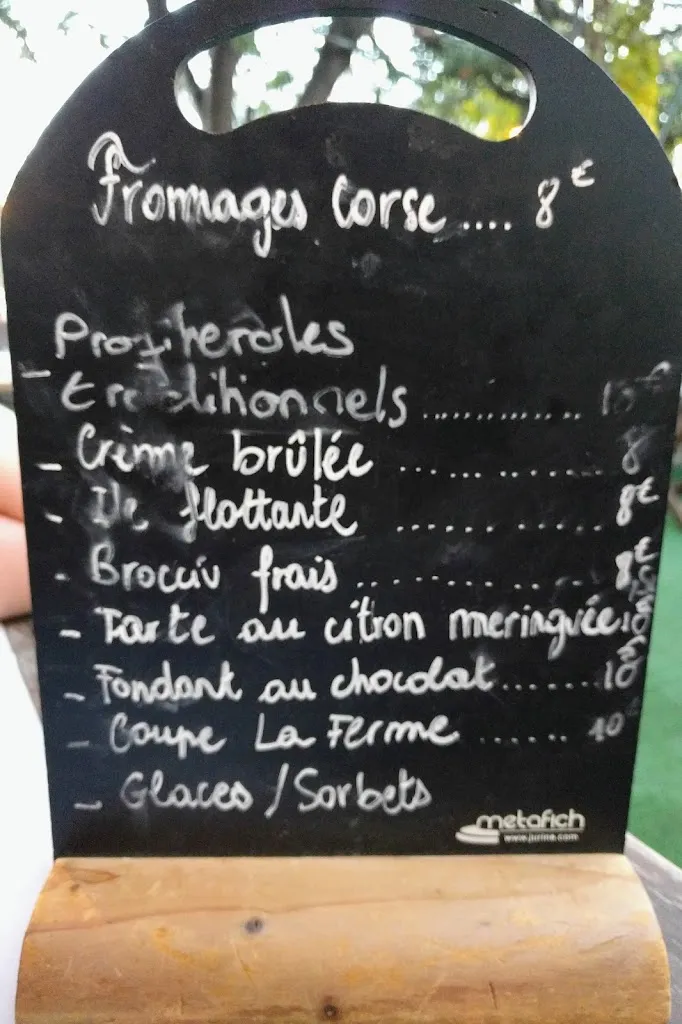 Fromages Corse .... 8€
Profiteroles
- traditionnels ............
- Crème brûlée ............ 8
- Ile flottante ............ 8€
- Brocciu frais ............ 8€
- Tarte au citron meringuée
- Fondant au chocolat ....... 10
- Coupe La Ferme ...... 10
- Glaces / Sorbets
metafich
www.jurine.com